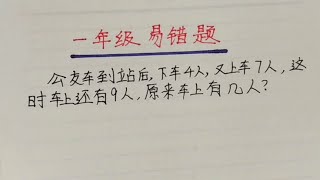 一年级易错题
公交车到站后,下车4人,又上车7人,这
时车上还有9人,原来车上有几人?